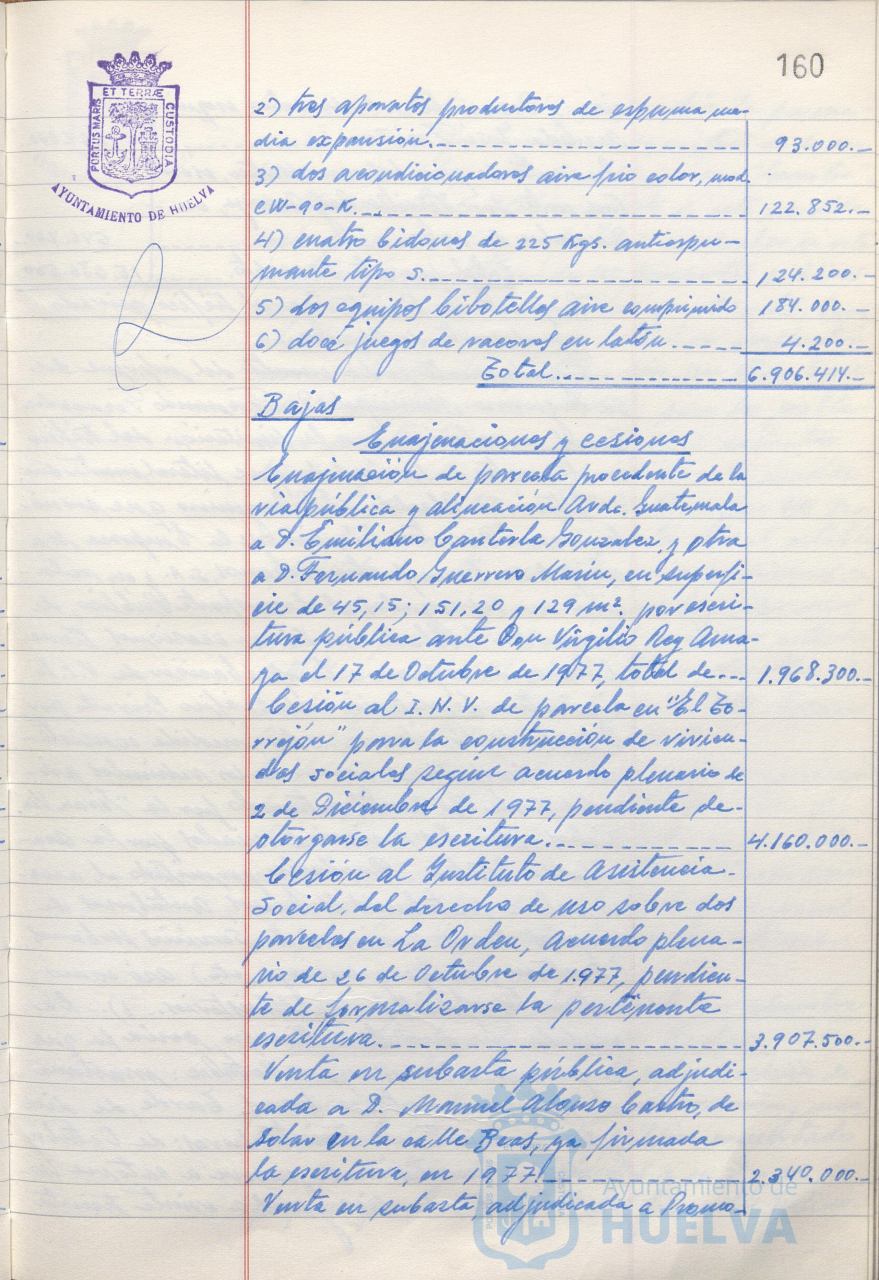 160
ET TERRÆ
PORTUS MARIS
CUSTODIA
AYUNTAMIENTO DE HUELVA
2) tres aparatos productores de espuma me-
dia expansión. 93.000.-
3) dos acondicionadores aire frio color, mod.
CW-90-K. 122.852.-
4) cuatro bidones de 225 Kgs. antiespu-
mante tipo S. 124.200.-
5) dos equipos bibotellas aire comprimido 184.000.-
6) doce juegos de racores en latón. 4.200.-
Total. 6.906.414.-
Bajas
Enajenaciones y cesiones
Enajenación de parcela procedente de la
via pública y alineación Avda. Guatemala
a D. Emiliano Cantarla Gonzalez, y otra
a D. Fernando Guerrero Marin, en superfi-
cie de 45,15; 151,20 y 129 m². por escri-
tura pública ante Don Virgilio Rey Ama-
ya el 17 de Octubre de 1977, total de 1.968.300.-
Cesión al I.N.V. de parcela en "El To-
rrejón" para la construcción de vivien-
das sociales según acuerdo plenario de
2 de Diciembre de 1977, pendiente de
otorgarse la escritura. 4.160.000.-
Cesión al Instituto de Asistencia
Social, del derecho de uso sobre dos
parcelas en La Orden, Acuerdo plena-
rio de 26 de Octubre de 1.977, pendien-
te de formalizarse la pertinente
escritura. 3.907.500.-
Venta en subasta pública, adjudi-
cada a D. Manuel Alonso Castro, de
solar en la calle Beas, ya firmada
la escritura, en 1977. 2.340.000.-
Venta en subasta, adjudicada a Promo-
Ayuntamiento de
HUELVA